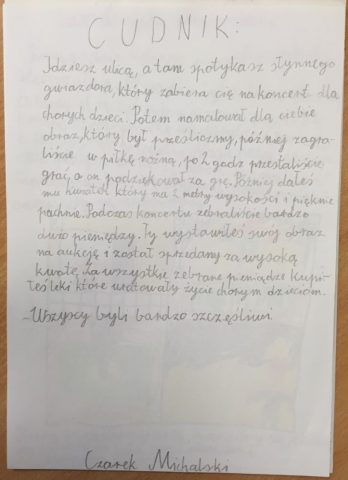 CUDNIK:
Idziesz ulicą, a tam spotykasz słynnego
gwiazdora, który zabiera cię na koncert dla
chorych dzieci. Potem namalował dla ciebie
obraz, który był prześliczny, później zagra-
liście w piłkę nożną, po 2 godz przestaliście
grać, a on podziękował za grę. Później dałeś
mu kwiatek który ma 2 metry wysokości i pięknie
pachnie. Podczas koncertu zebraliście bardzo
dużo pieniędzy. Ty wystawiłeś swój obraz
na aukcję i został sprzedany za wysoką
kwotę. Za wszystkie zebrane pieniądze kupi-
łeś leki które uratowały życie chorym dzieciom.
-Wszyscy byli bardzo szczęśliwi.
Czarek Michalski